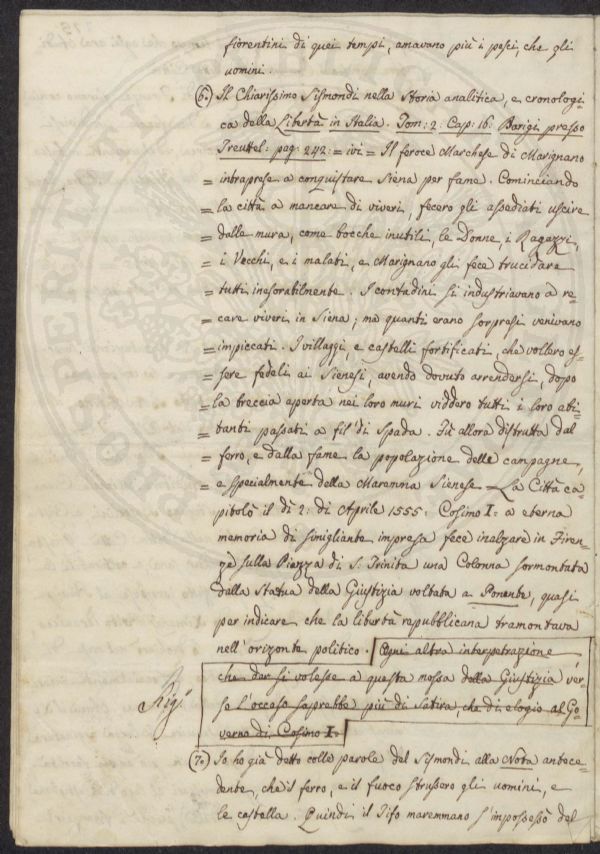 fiorentini di quei tempi, amavano più i pesci, che gli
uomini.
(6.) Il Chiarissimo Sismondi nella Storia analitica, e cronologi
ca della Libertà in Italia. Tom: 2: Cap: 16: Parigi presso
Treuttel: pag: 242: = ivi = Il feroce Marchese di Marignano
= intraprese a conquistare Siena per fame. Cominciando
= la città a mancare di viveri, fecero gli assediati uscire
= dalle mura, come bocche inutili, le Donne, i Ragazzi,
= i Vecchi, e i malati, e Marignano gli fece trucidare
= tutti inesorabilmente. I contadini si industriavano a re
= care viveri in Siena; ma quanti erano sorpresi venivano
= impiccati. I villaggi, e castelli fortificati, che vollero es=
= sere fedeli ai Sienesi, avendo dovuto arrendersi, dopo
= la breccia aperta nei loro muri viddero tutti i loro abi
= tanti passati a fil di Spada. Fù allora distrutta dal
= ferro, e dalla fame la popolazione delle campagne,
= e specialmente della Maremma Sienese = La Città ca
pitolò il dì 2: di Aprile 1555: Cosimo I: a eterna
memoria di simigliante impresa fece inalzare in Firen
ze sulla Piazza di S: Trinita una Colonna sormontata
dalla Statua della Giustizia voltata a Ponente, quasi
per indicare che la libertà repubblicana tramontava
nell'orizonte politico. Ogni altra interpetrazione
che dar si volesse a questa mossa della Giustizia ver=
so l'occaso saprebbe più di Satira, che di elogio al Go
verno di Cosimo I:
(7.) Io ho già detto colle parole del Sismondi alla Nota antece
dente, che il ferro, e il fuoco strussero gli uomini, e
le castella. Quindi il Tifo maremmano s'impossessò del